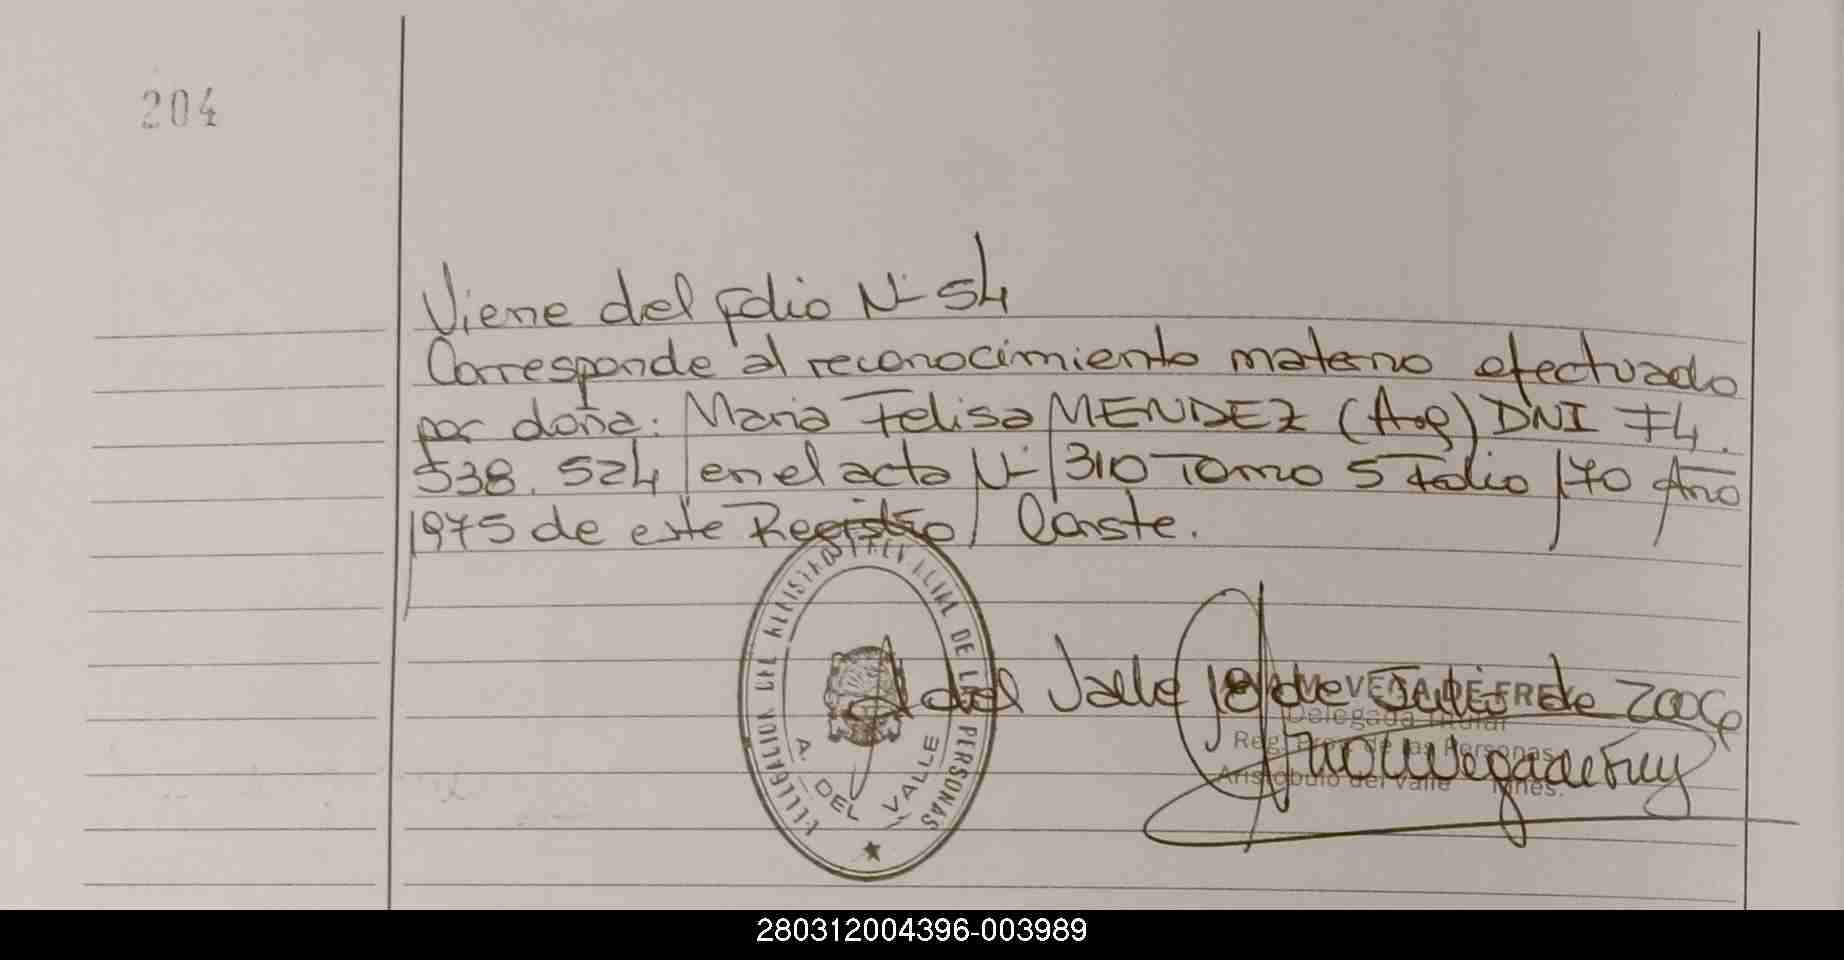 204
Viene del folio Nº 54
Corresponde al reconocimiento materno efectuado
por doña: Maria Felisa MENDEZ (Arg) DNI F4.
538.524 en el acta Nº 310 Tomo 5 Folio 170 Año
1975 de este Registro/ Conste.
A del Valle 18 de Julio de 2006
DELEGACION DEL REGISTRO PROVINCIAL DE LAS PERSONAS
A. DEL VALLE
VEGA DE FREY
Delegada Titular
Reg. Prov. de las Personas
Aristobulo del Valle Mnes.
280312004396-003989